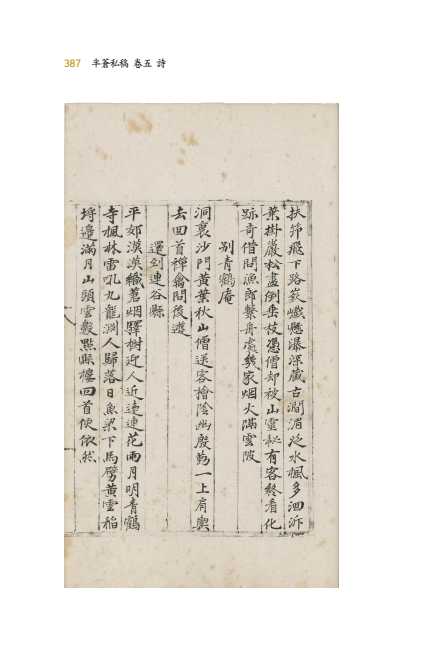 387 半蒼私稿 卷五 詩
扶笻飛下路嶔巇懸瀑深藏古澗湄泛水楓多洄泝
葉掛巖松盡倒垂枝憑僧却被山靈秘有客終看化
跡奇借問漁郎繫舟處幾家烟火隔雲陂
別青鶴庵
洞裏沙門黃葉秋山僧送客檜陰幽慇懃一上肩輿
去回首禪龕問後遊
還到連谷縣
平郊漠漠織暮烟驛樹近人近遠連花雨月明青鶴
寺楓林雷吼九龍淵人歸落日魚梁下馬劈黃雲稻
埒邊滿月山頭雲數點縣樓回首便依然